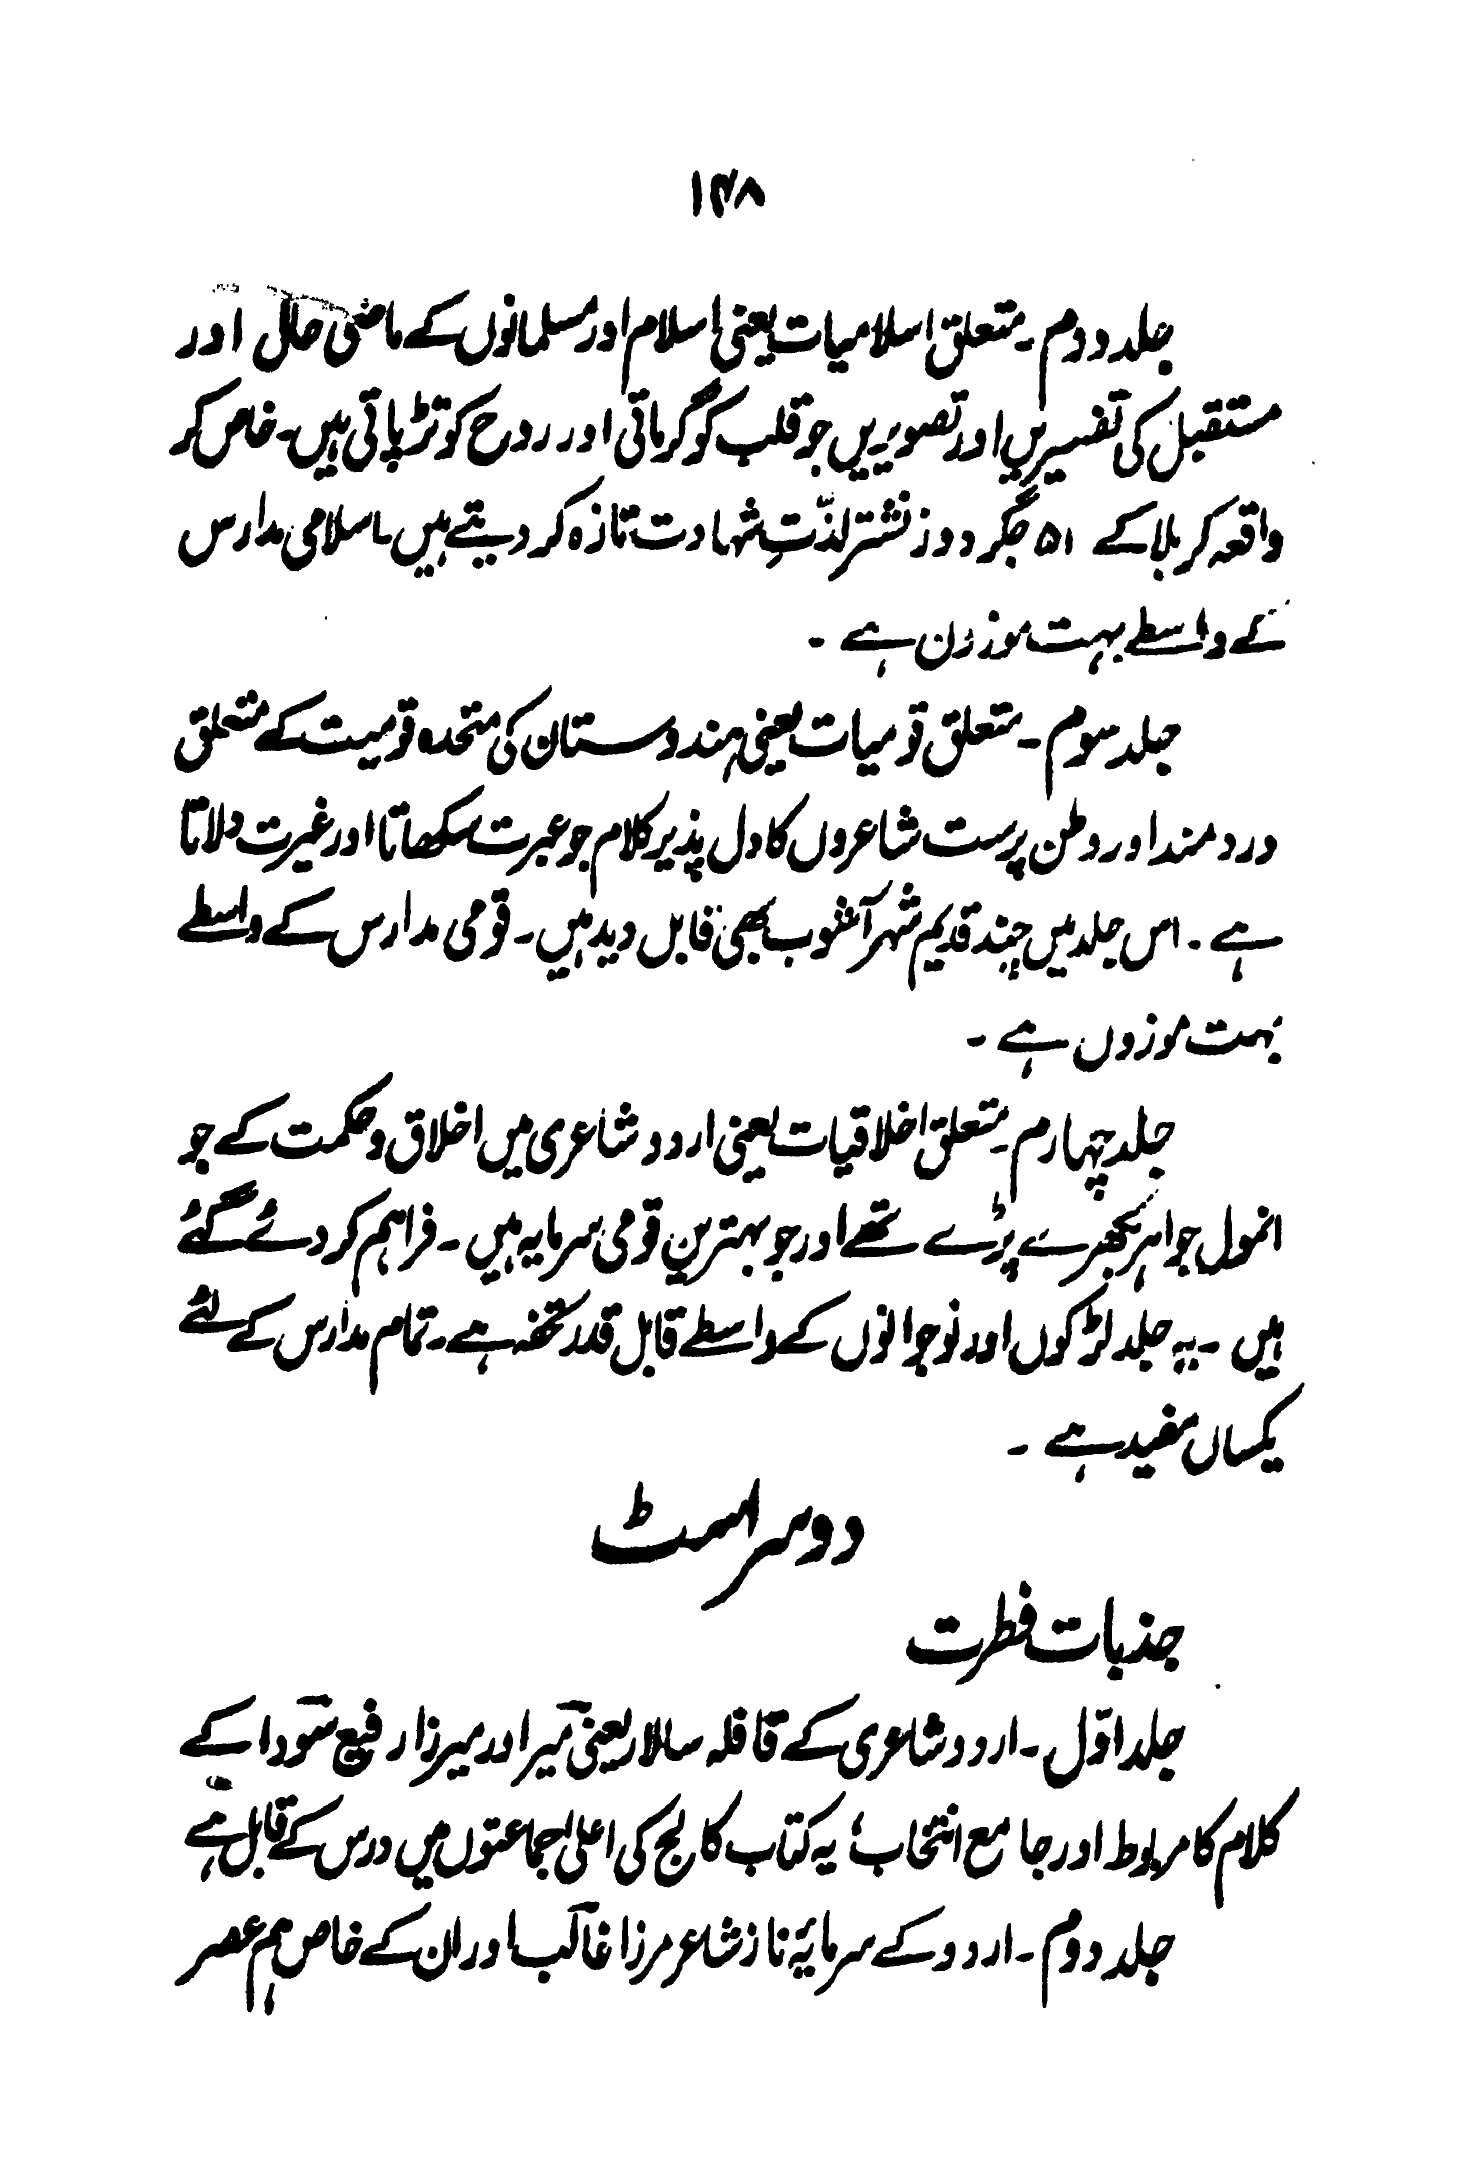 ۱۴۸
جلد دوم ۔ متعلق اسلامیات یعنی اسلام اور مسلمانوں کے ماضی حال اور
مستقبل کی تفسیریں اور تصویریں جو قلب کو گرماتی اور روح کو تڑپاتی ہیں۔ خاص کر
واقعہ کربلا کے ۵۱ جگر دوز نشتر لذّتِ شہادت تازہ کر دیتے ہیں ۔ اسلامی مدارس
کے واسطے بہت موزون ہے ۔
جلد سوم ۔ متعلق قومیات یعنی ہندوستان کی متحدہ قومیت کے متعلق
دردمند اور وطن پرست شاعروں کا دل پذیر کلام جو عبرت سکھاتا اور غیرت دلاتا
ہے ۔ اس جلد میں چند قدیم شہر آشوب بھی قابل دید ہیں ۔ قومی مدارس کے واسطے
بہت موزوں ہے ۔
جلد چہارم ۔ متعلق اخلاقیات یعنی اردو شاعری میں اخلاق و حکمت کے جو
انمول جواہر بکھرے پڑے تھے اور جو بہترین قومی سرمایہ ہیں ۔ فراہم کر دئے گئے
ہیں ۔ یہ جلد لڑکوں اور نوجوانوں کے واسطے قابل قدر تحفہ ہے ۔ تمام مدارس کے لئے
یکساں مفید ہے ۔
دوسرا سٹ
جذبات فطرت
جلد اوّل ۔ اردو شاعری کے قافلہ سالار یعنی میر اور میرزا رفیع سودا کے
کلام کا مربوط اور جامع انتخاب؛ یہ کتاب کالج کی اعلیٰ جماعتوں میں درس کے قابل ہے
جلد دوم ۔ اردو کے سرمایۂ ناز شاعر مرزا غالب اور ان کے خاص ہم عصر